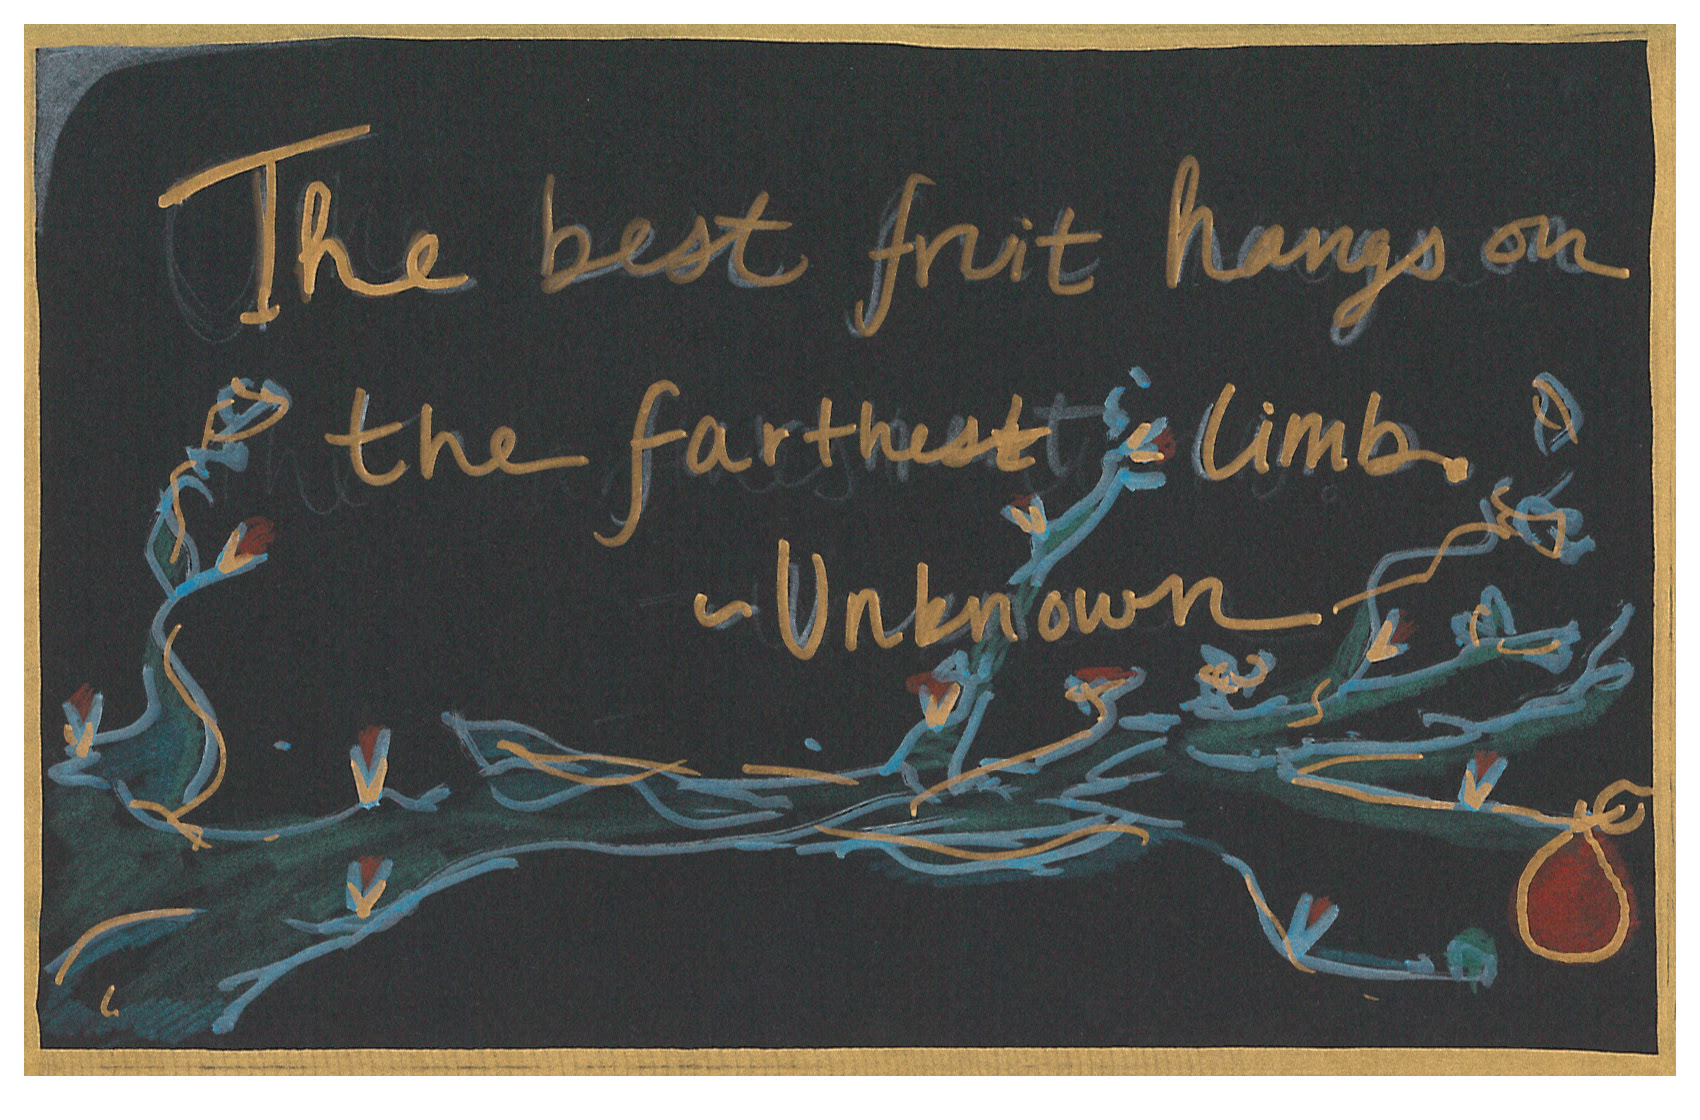 The best fruit hangs on
the farthest limb.
~Unknown